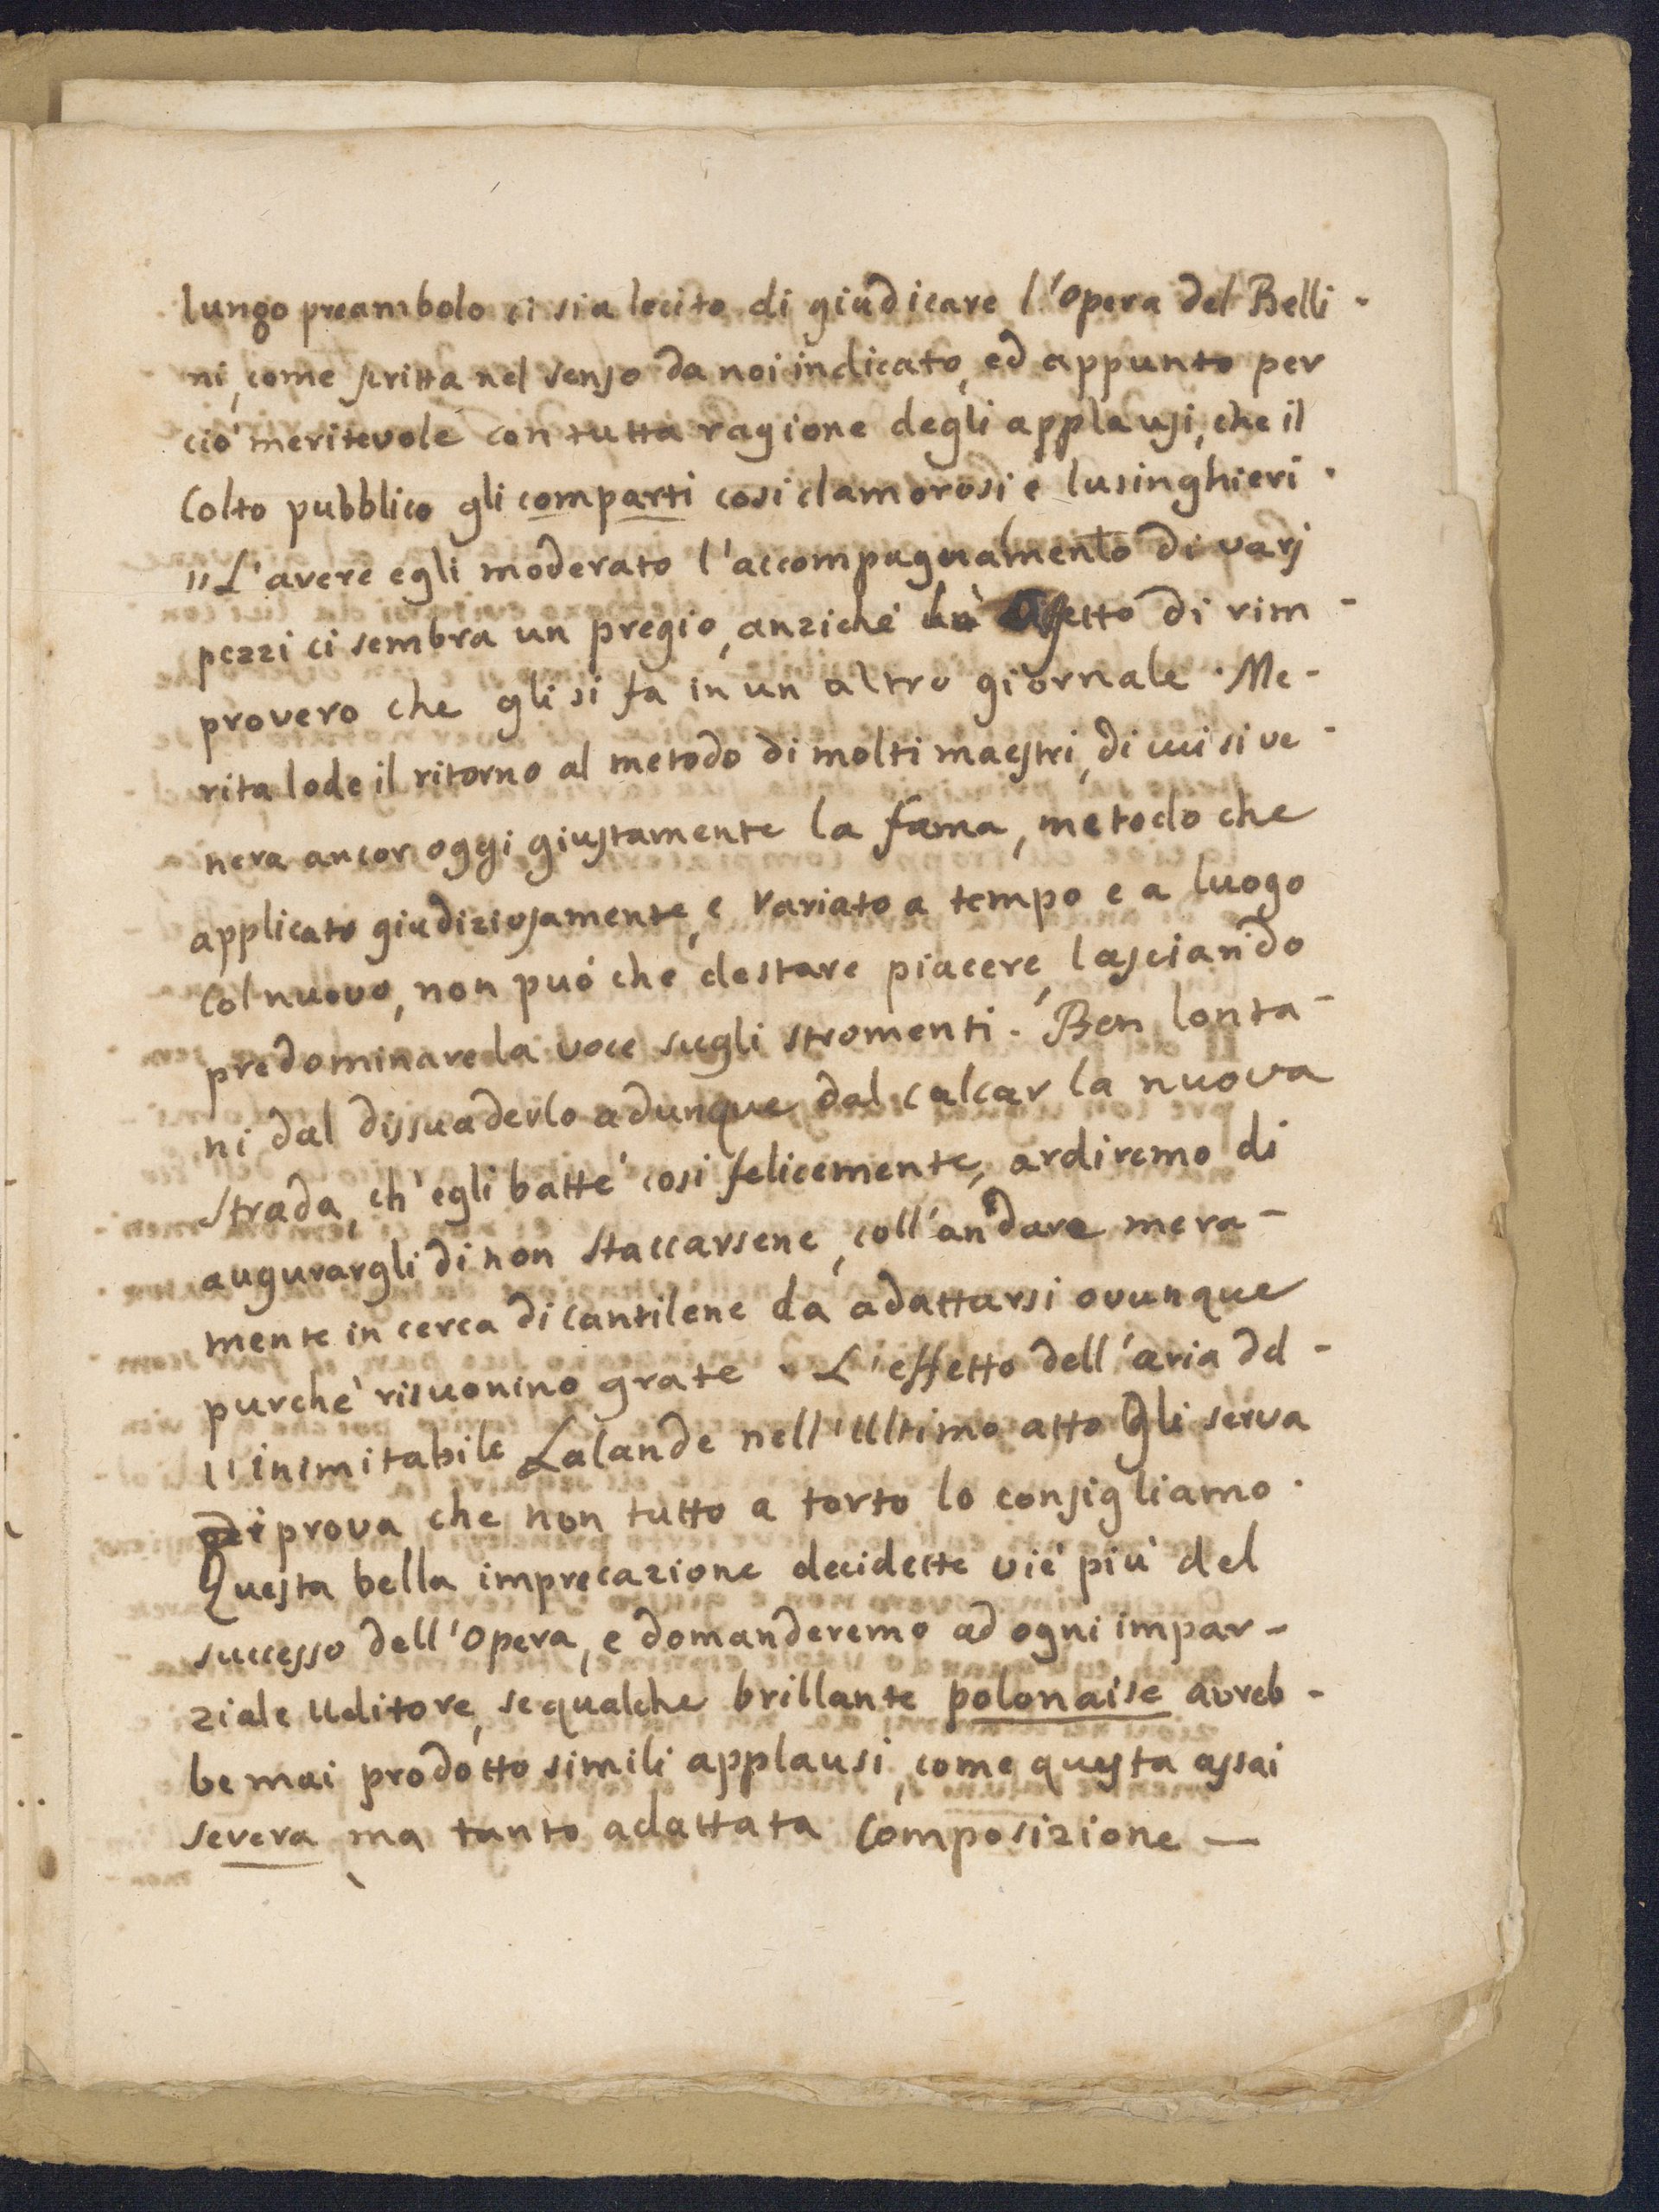 lungo preambolo ci sia lecito di giudicare l'Opera del Belli-
ni, come scritta nel senso da noi indicato, ed appunto per
ciò meritevole con tutta ragione degli applausi, che il
Colto pubblico gli comparti cosi clamorosi e lusinghieri.
"L'avere egli moderato l'accompagnamento di varj
pezzi ci sembra un pregio, anziché un' Offetto di rim-
provero che gli si fa in un altro giornale. Me-
rita lode il ritorno al metodo di molti maestri, di cui si ve-
nera ancor oggi giustamente la fama, metodo che
applicato giudiziosamente, e variato a tempo e a luogo
col nuovo, non può che destare piacere, lasciando
predominare la voce sugli stromenti. Ben lonta-
ni dal dissuaderlo adunque dal calcar la nuova
strada, ch'egli batte' cosi felicemente, ardiremo di
augurargli di non staccarsene, coll'andare mera-
mente in cerca di cantilene da adattarsi ovunque
purche' risuonino grate. L'effetto dell'aria del-
l'inimitabile Lalande nell'Ultimo atto Gli serva
di prova che non tutto a torto lo consigliamo.
Questa bella imprecazione decidette vie' più del
successo dell'Opera, e domanderemo ad ogni impar-
ziale Uditore, se qualche brillante polonaise avreb-
be mai prodotto simili applausi, come questa assai
severa ma tanto adattata Composizione —